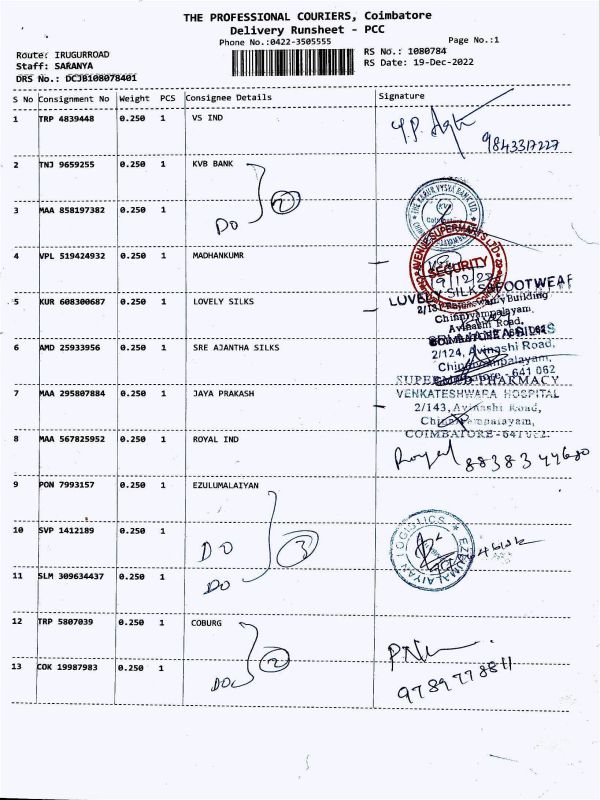 THE PROFESSIONAL COURIERS, Coimbatore
Delivery Runsheet - PCC
Phone No.:0422-3505555
Page No.:1
Route: IRUGURROAD
RS No.: 1080784
Staff: SARANYA
RS Date: 19-Dec-2022
DRS No.: DCJB108078401
S No Consignment No Weight PCS Consignee Details Signature
1 TRP 4839448 0.250 1 VS IND
9843317227
2 TNJ 9659255 0.250 1 KVB BANK
2
3 MAA 858197382 0.250 1
DO
4 VPL 519424932 0.250 1 MADHANKUMR
AVENUE SUPERMARTS LTD
SECURITY
5 KUR 608300687 0.250 1 LOVELY SILKS
LOVELY SILKS & FOOTWEAR
Building
Chinniyampalayam,
Avinashi Road,
6 AMD 25933956 0.250 1 SRE AJANTHA SILKS
2/124, Avinashi Road,
Chinniyampalayam,
641 062
SUPERMED PHARMACY
7 MAA 295807884 0.250 1 JAYA PRAKASH
VENKATESHWARA HOSPITAL
2/143, Avinashi Road,
Chinniyampalayam,
COIMBATORE - 641 062.
8 MAA 567825952 0.250 1 ROYAL IND
Royal
9 PON 7993157 0.250 1 EZULUMALAIYAN
10 SVP 1412189 0.250 1
DO
3
EZHUMALAIYAN LOGISTICS
11 SLM 309634437 0.250 1
DO
12 TRP 5807039 0.250 1 COBURG
2
13 COK 19987983 0.250 1
DO
9789778811